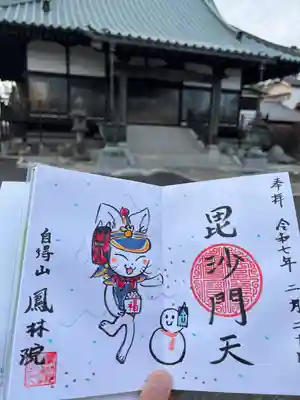 奉拝
令和七年 二月二十
毘沙門天
福
自得山
鳳林院